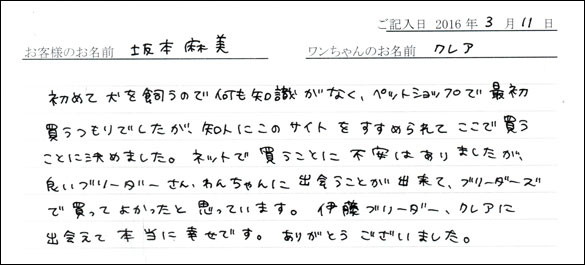 ご記入日 2016 年 3 月 11 日
お客様のお名前 坂本麻美 ワンちゃんのお名前 クレア
初めて犬を飼うので何も知識がなく、ペットショップで最初
買うつもりでしたが、知人にこのサイトをすすめられてここで買う
ことに決めました。ネットで買うことに不安はありましたが、
良いブリーダーさん、わんちゃんに出会うことが出来て、ブリーダーズ
で買ってよかったと思っています。伊藤ブリーダー、クレアに
出会えて本当に幸せです。ありがとうございました。